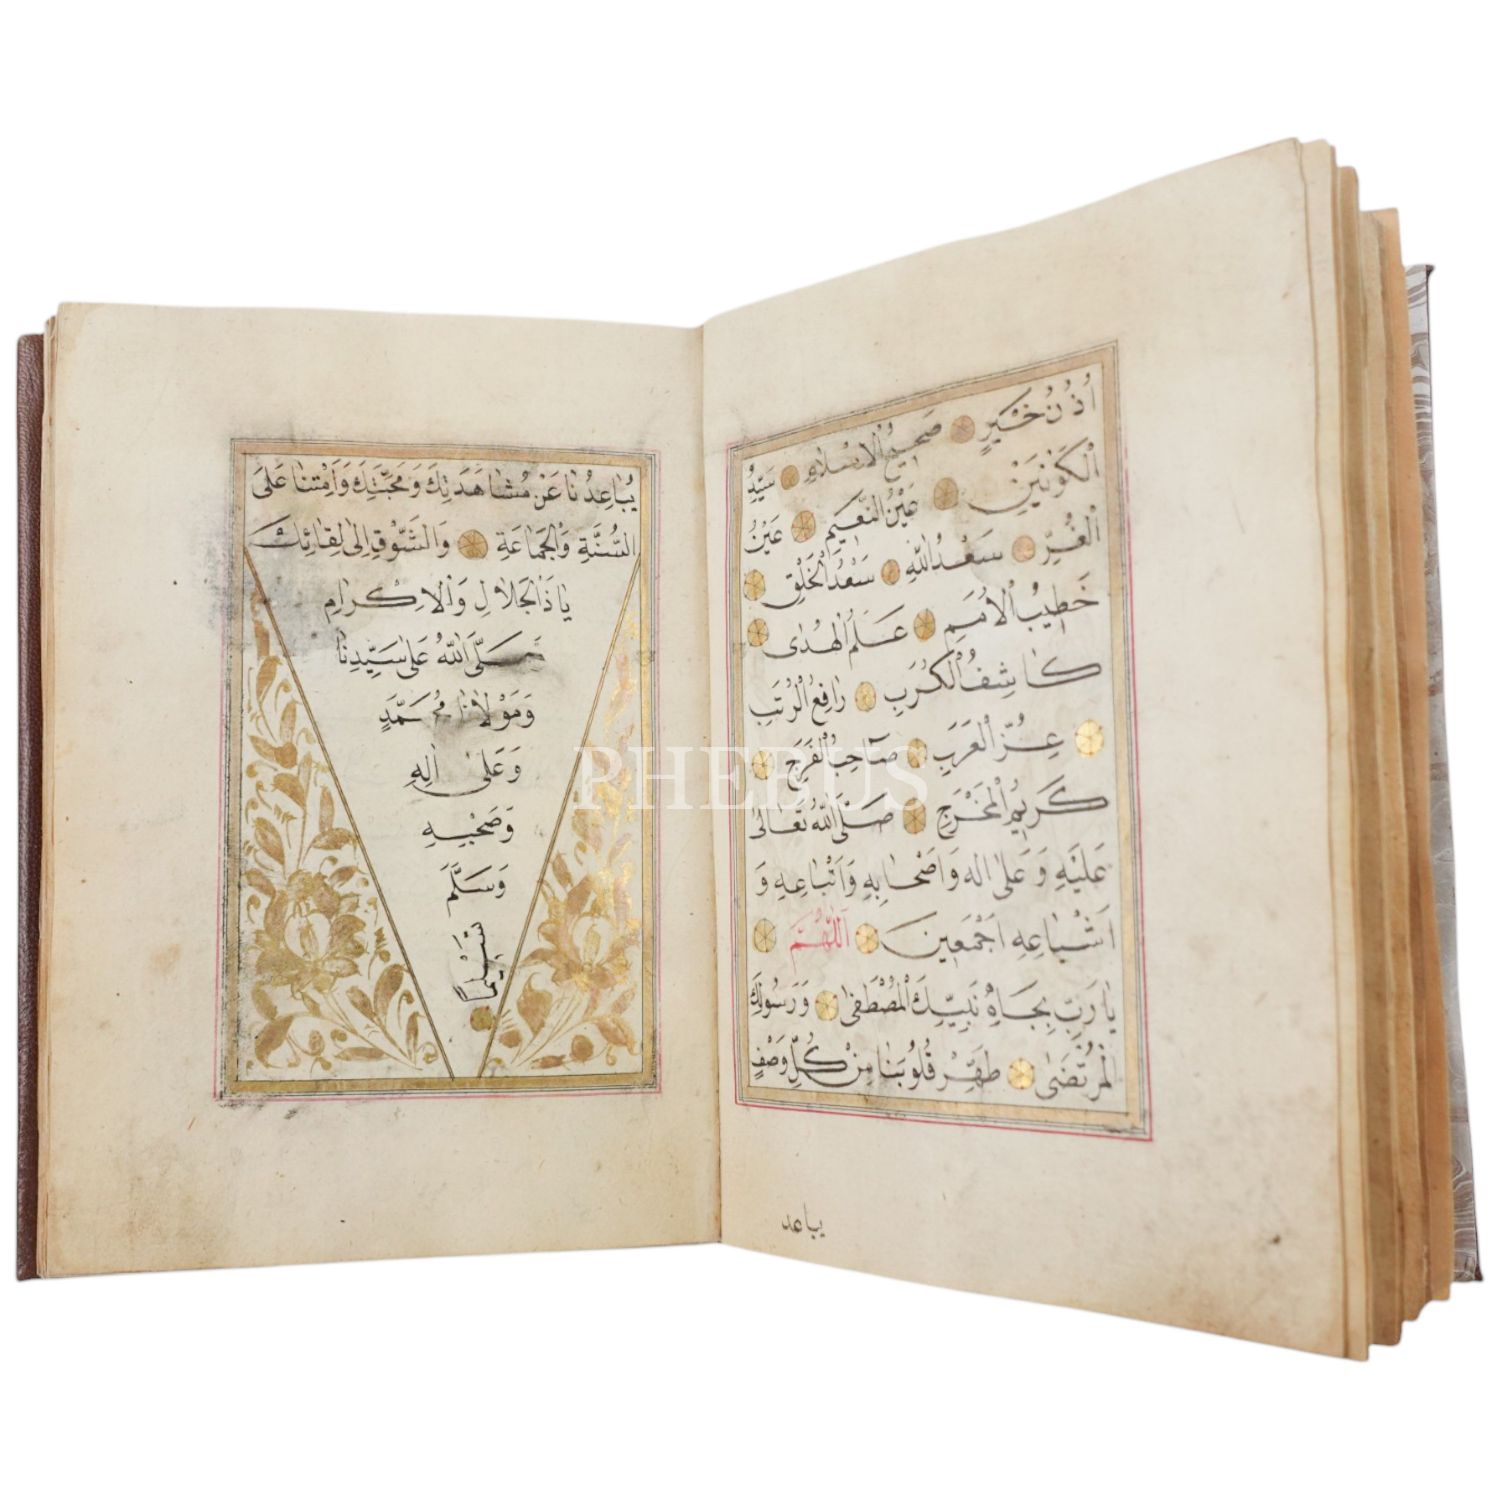 اُذُنُ خَيْرٍ صَحِيحُ الْاِسْلَامِ سَيِّدُ
الْكَوْنَيْنِ عَيْنُ النَّعِيمِ عَيْنُ
الْغُرِّ سَعْدُ اللّٰهِ سَعْدُ الْخَلْقِ
خَطِيبُ الْاُمَمِ عَلَمُ الْهُدٰى
كَاشِفُ الْكُرَبِ رَافِعُ الرُّتَبِ
عِزُّ الْعَرَبِ صَاحِبُ الْفَرَجِ
كَرِيمُ الْمَخْرَجِ صَلَّى اللّٰهُ تَعَالٰى
عَلَيْهِ وَعَلٰى اٰلِهِ وَاَصْحَابِهِ وَاَتْبَاعِهِ وَ
اَشْيَاعِهِ اَجْمَعِينَ اَللّٰهُمَّ
يَا رَبِّ بِجَاهِ نَبِيِّكَ الْمُصْطَفٰى وَرَسُولِكَ
الْمُرْتَضٰى طَهِّرْ قُلُوبَنَا مِنْ كُلِّ وَصْفٍ
يباعد
يُبَاعِدُنَا عَنْ مُشَاهَدَتِكَ وَمَحَبَّتِكَ وَاَمِتْنَا عَلَى
السُّنَّةِ وَالْجَمَاعَةِ وَالشَّوْقِ اِلٰى لِقَائِكَ
يَا ذَا الْجَلَالِ وَالْاِكْرَامِ
صَلَّى اللّٰهُ عَلٰى سَيِّدِنَا
وَمَوْلَانَا مُحَمَّدٍ
وَعَلٰى اٰلِهِ
وَصَحْبِهِ
وَسَلَّمَ
تَسْلِيمًا
PHEBUS